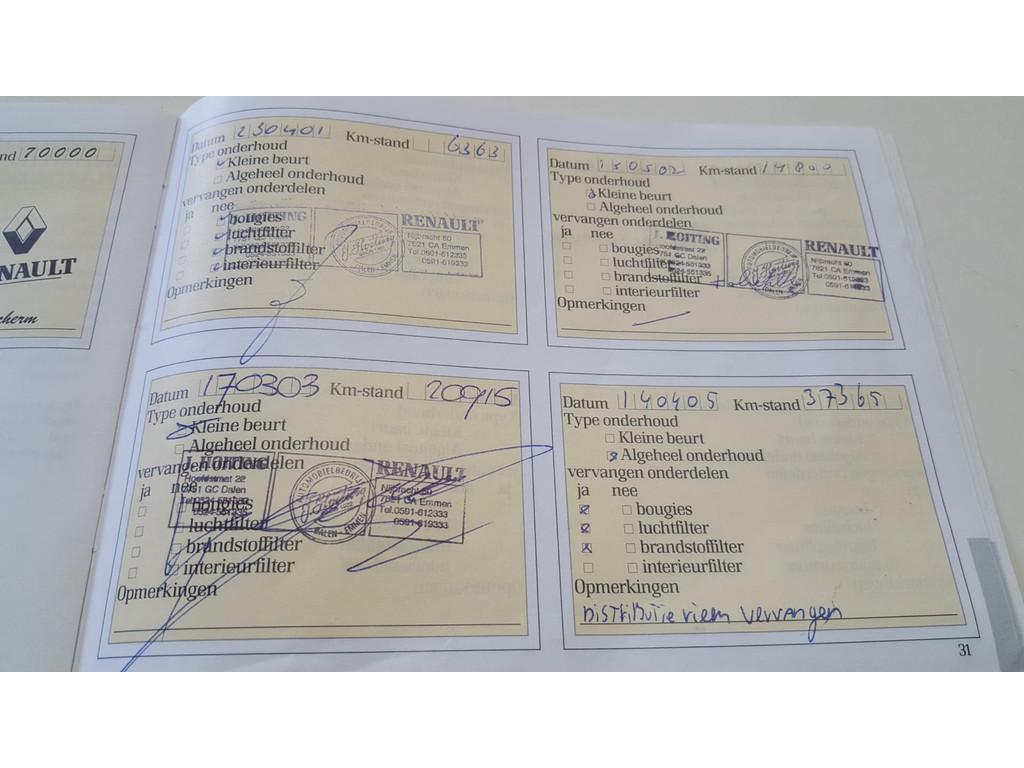 nd 70000
NAULT
cherm
Datum 230401 Km-stand 6363
Type onderhoud
Kleine beurt
Algeheel onderhoud
vervangen onderdelen
ja nee
bougies
luchtfilter
brandstoffilter
interieurfilter
Opmerkingen
HOITING
RENAULT
Nijbracht 80
7821 CA Emmen
Tel.0591-612333
0591-619333
Datum 150502 Km-stand 14809
Type onderhoud
Kleine beurt
Algeheel onderhoud
vervangen onderdelen
ja nee
bougies
luchtfilter
brandstoffilter
interieurfilter
Opmerkingen
J. HOITING
Hoofdstraat 22
7751 GC Dalen
AUTOMOBIELBEDRIJF
DALEN
RENAULT
Nijbracht 80
7821 CA Emmen
Tel.0591-612333
0591-6
Datum 170303 Km-stand 20915
Type onderhoud
Kleine beurt
Algeheel onderhoud
vervangen onderdelen
ja nee
bougies
luchtfilter
brandstoffilter
interieurfilter
Opmerkingen
J. HOITING
Hoofdstraat 22
7751 GC Dalen
Tel.0524-551333
0524-551335
AUTOMOBIELBEDRIJF
DALEN - EMMEN
RENAULT
Nijbracht 80
7821 CA Emmen
Tel.0591-612333
0591-619333
Datum 140405 Km-stand 37365
Type onderhoud
Kleine beurt
Algeheel onderhoud
vervangen onderdelen
ja nee
bougies
luchtfilter
brandstoffilter
interieurfilter
Opmerkingen
Distributie riem vervangen
31